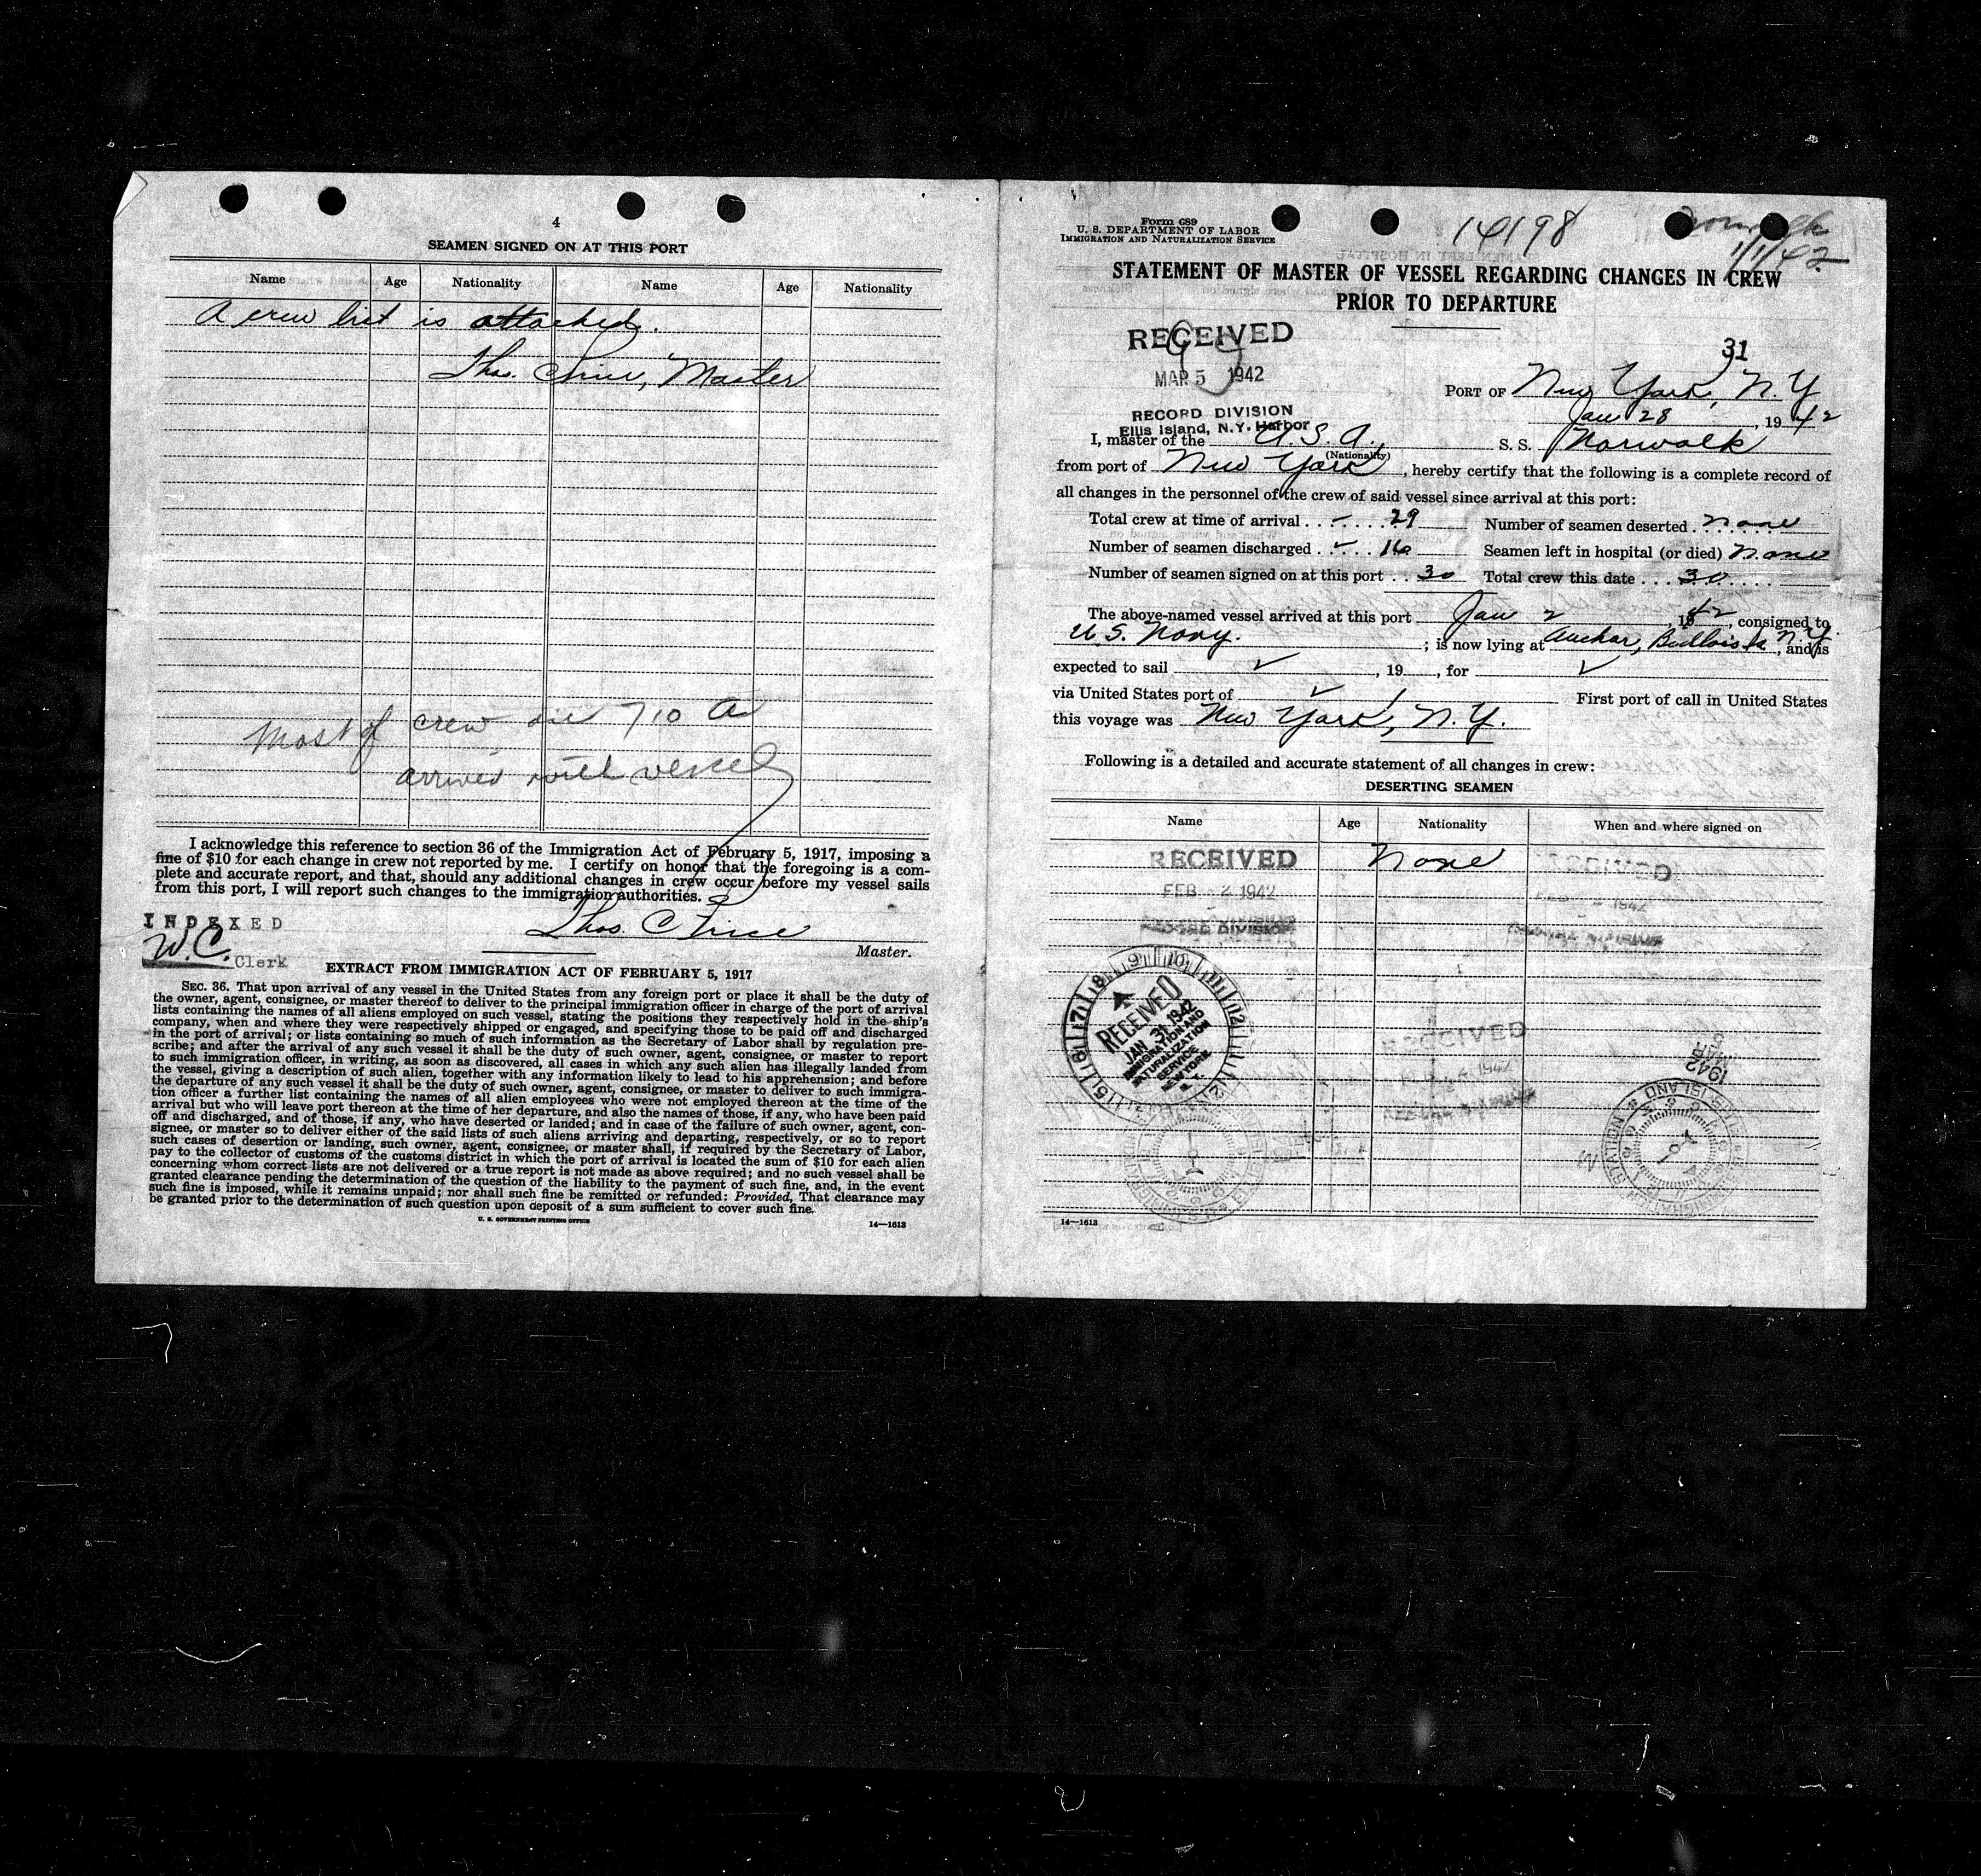 4
SEAMEN SIGNED ON AT THIS PORT
Name Age Nationality Name Age Nationality
A crew list is attached.
Thos. C Price, Master
Most of crew on 710 A
arrived with vessel
I acknowledge this reference to section 36 of the Immigration Act of February 5, 1917, imposing a
fine of $10 for each change in crew not reported by me. I certify on honor that the foregoing is a com-
plete and accurate report, and that, should any additional changes in crew occur before my vessel sails
from this port, I will report such changes to the immigration authorities.
INDEXED
Thos. C Price
W.C. Clerk
Master.
EXTRACT FROM IMMIGRATION ACT OF FEBRUARY 5, 1917
SEC. 36. That upon arrival of any vessel in the United States from any foreign port or place it shall be the duty of
the owner, agent, consignee, or master thereof to deliver to the principal immigration officer in charge of the port of arrival
lists containing the names of all aliens employed on such vessel, stating the positions they respectively hold in the ship's
company, when and where they were respectively shipped or engaged, and specifying those to be paid off and discharged
in the port of arrival; or lists containing so much of such information as the Secretary of Labor shall by regulation pre-
scribe; and after the arrival of any such vessel it shall be the duty of such owner, agent, consignee, or master to report
to such immigration officer, in writing, as soon as discovered, all cases in which any such alien has illegally landed from
the vessel, giving a description of such alien, together with any information likely to lead to his apprehension; and before
the departure of any such vessel it shall be the duty of such owner, agent, consignee, or master to deliver to such immigra-
tion officer a further list containing the names of all alien employees who were not employed thereon at the time of the
arrival but who will leave port thereon at the time of her departure, and also the names of those, if any, who have been paid
off and discharged, and of those, if any, who have deserted or landed; and in case of the failure of such owner, agent, con-
signee, or master so to deliver either of the said lists of such aliens arriving and departing, respectively, or so to report
such cases of desertion or landing, such owner, agent, consignee, or master shall, if required by the Secretary of Labor,
pay to the collector of customs of the customs district in which the port of arrival is located the sum of $10 for each alien
concerning whom correct lists are not delivered or a true report is not made as above required; and no such vessel shall be
granted clearance pending the determination of the question of the liability to the payment of such fine, and, in the event
such fine is imposed, while it remains unpaid; nor shall such fine be remitted or refunded: Provided, That clearance may
be granted prior to the determination of such question upon deposit of a sum sufficient to cover such fine.
U. S. GOVERNMENT PRINTING OFFICE
14—1613
Form 689
U. S. DEPARTMENT OF LABOR
IMMIGRATION AND NATURALIZATION SERVICE
14198
Norwalk
1/1/42
STATEMENT OF MASTER OF VESSEL REGARDING CHANGES IN CREW
PRIOR TO DEPARTURE
RECEIVED
MAR 5 1942
RECORD DIVISION
Ellis Island, N.Y. Harbor
31
PORT OF New York, N.Y
Jan 28, 1942
I, master of the U.S.A., S. S. Norwalk
(Nationality)
from port of New York, hereby certify that the following is a complete record of
all changes in the personnel of the crew of said vessel since arrival at this port:
Total crew at time of arrival 29 Number of seamen deserted none
Number of seamen discharged 16 Seamen left in hospital (or died) none
Number of seamen signed on at this port 30 Total crew this date 30
The above-named vessel arrived at this port Jan 2, 1942, consigned to
U.S. Navy.; is now lying at Anchor, N.Y., and is
expected to sail ✓, 19, for ✓
via United States port of ✓ First port of call in United States
this voyage was New York, N.Y.
Following is a detailed and accurate statement of all changes in crew:
DESERTING SEAMEN
Name Age Nationality When and where signed on
RECEIVED None RECEIVED
FEB 2 1942
RECORD DIVISION
RECEIVED
JAN 31 1942
IMMIGRATION AND
NATURALIZATION
SERVICE
NEW YORK
N. Y.
RECEIVED
1942 MAR 5
14—1613